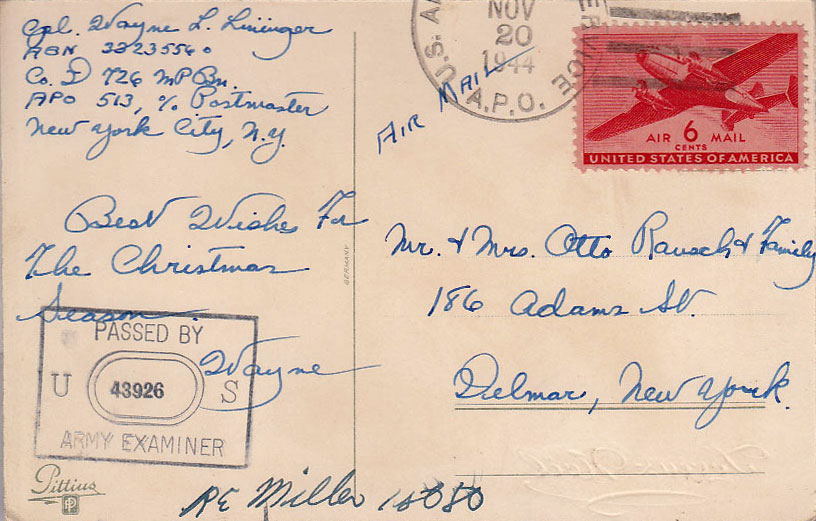 Cpl. Wayne L. Lininger
ASN 32235560
Co. D 726 MP Bn.
APO 513, c/o Postmaster
New York City, N.Y.
Best Wishes For
The Christmas
Season.
Wayne
PASSED BY
U 43926 S
ARMY EXAMINER
Pittius
RE Miller
GERMANY
AIR MAIL
NOV
20
1944
A.P.O.
AIR 6 MAIL
CENTS
UNITED STATES OF AMERICA
Mr. & Mrs. Otto Rausch & Family
186 Adams St.
Delmar, New York.